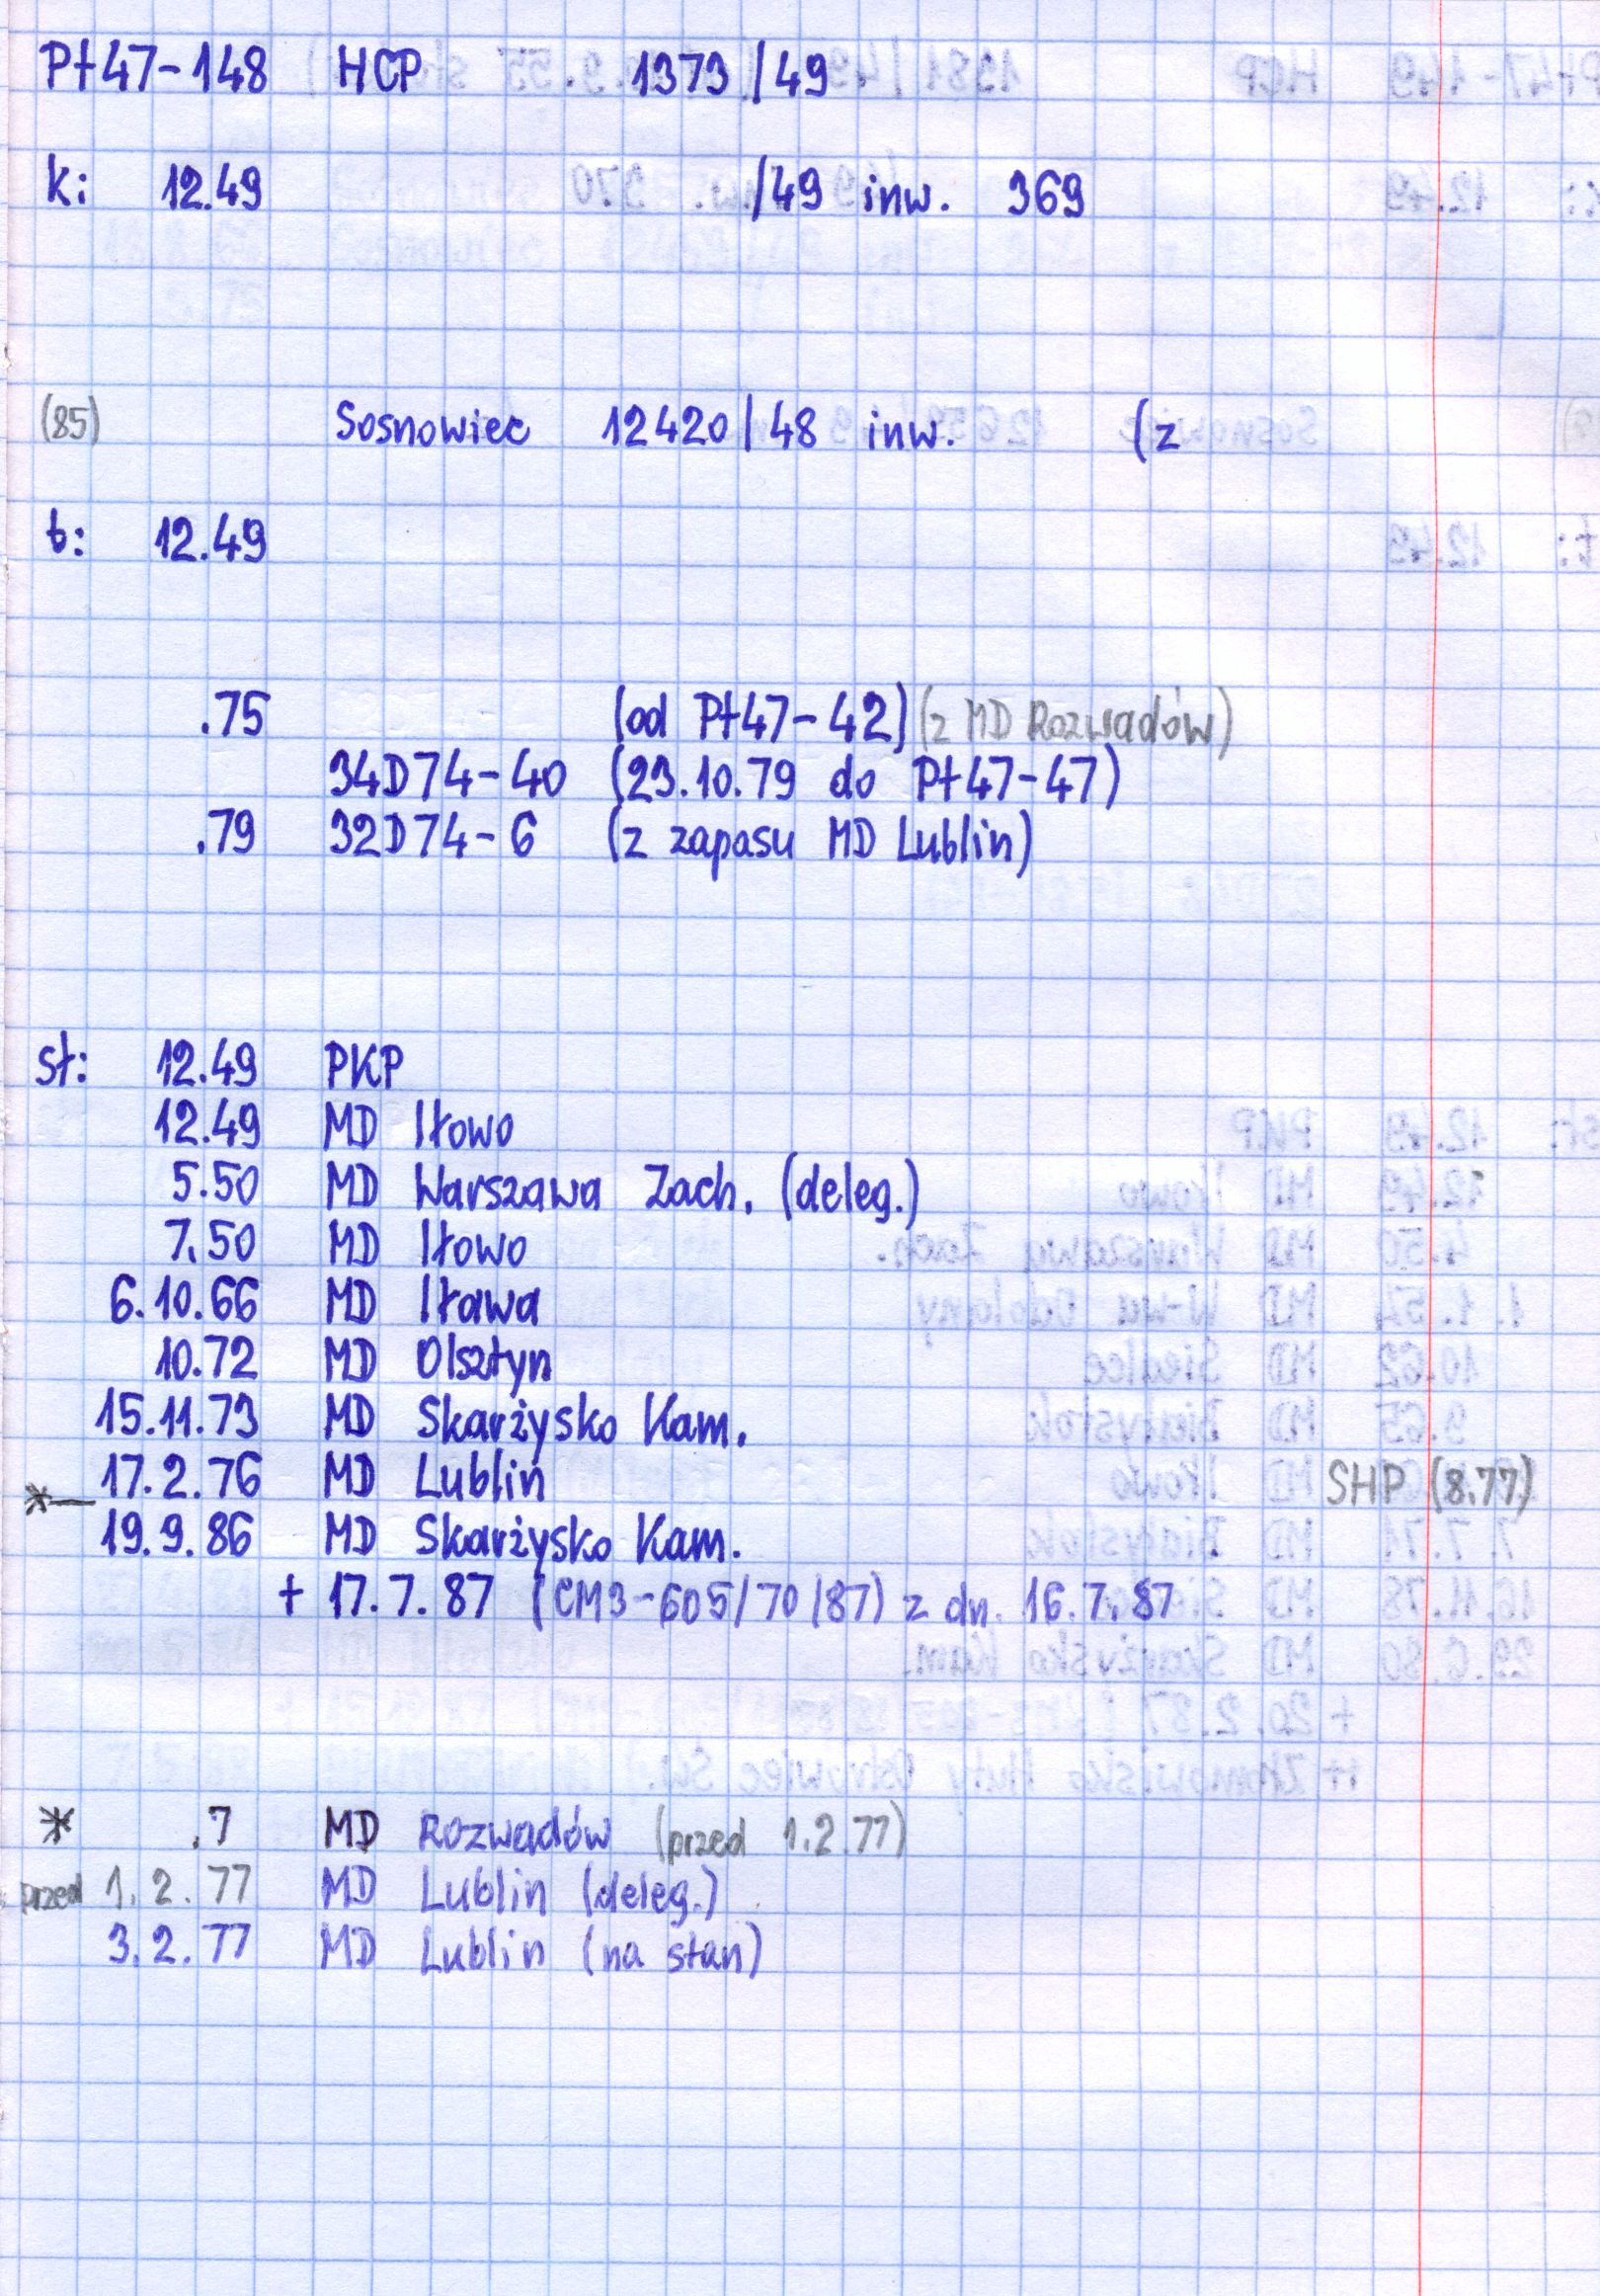 Pt47-148 HCP 1373/49
k: 12.49 /49 inw. 369
(85) Sosnowiec 12420/48 inw. (z
t: 12.49
.75 (od Pt47-42) (z MD Rozwadów)
34D74-40 (23.10.79 do Pt47-47)
.79 32D74-6 (z zapasu MD Lublin)
st: 12.49 PKP
12.49 MD Iłowo
5.50 MD Warszawa Zach. (deleg.)
7.50 MD Iłowo
6.10.66 MD Iława
10.72 MD Olsztyn
15.11.73 MD Skarżysko Kam.
17.2.76 MD Lublin SHP (8.77)
*—
19.9.86 MD Skarżysko Kam.
+ 17.7.87 (CM3-605/70/87) z dn. 16.7.87
* .7 MD Rozwadów (przed 1.2.77)
przed 1.2.77 MD Lublin (deleg.)
3.2.77 MD Lublin (na stan)